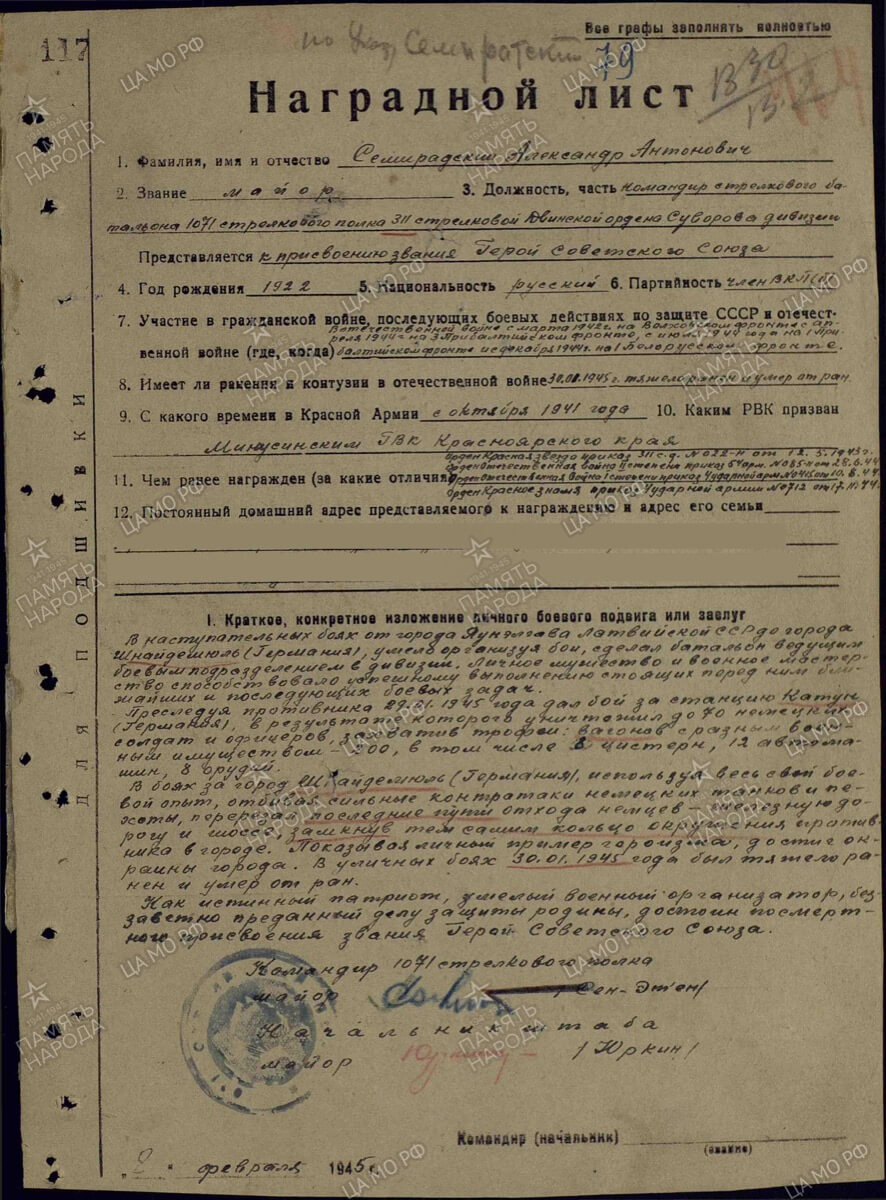 Все графы заполнять полностью
117
по Указ, Семиратский
79
Наградной лист
1. Фамилия, имя и отчество Семирадский Александр Антонович
2. Звание майор 3. Должность, часть командир стрелкового ба-
тальона 1071 стрелкового полка 311 стрелковой Двинской ордена Суворова дивизии
Представляется к присвоению звания Герой Советского Союза
4. Год рождения 1922 5. Национальность русский 6. Партийность член ВКП(б)
7. Участие в гражданской войне, последующих боевых действиях по защите СССР и отечест-
В отечественной войне с марта 1942г. на Волховском фронте с ап-
реля 1944г на 3 Прибалтийском фронте, с июля 1944 года на 1 При-
венной войне (где, когда) балтийском фронте и с декабря 1944г. на 1 Белорусском фронте.
8. Имеет ли ранения и контузии в отечественной войне 30.01.1945г. тяжело ранен и умер от ран
9. С какого времени в Красной Армии с октября 1941 года 10. Каким РВК призван
Минусинским ГВК Красноярского края
Орден Красная звезда приказ 311 с.д. №022-н от 12.5.1943г.
Орден Отечественная война II степени приказ 54 арм. №085-н от 28.6.44
11. Чем ранее награжден (за какие отличия) Орден Отечественная война I степени приказ 4 ударной арм. №0415 от 10.8.44.
Орден Красное знамя приказ 4 ударной армии №0712 от 17.11.44г.
12. Постоянный домашний адрес представляемого к награждению и адрес его семьи
I. Краткое, конкретное изложение личного боевого подвига или заслуг
В наступательных боях от города Яунелгава Латвийской ССР до города
Шнайдемюль (Германия), умело организуя бои, сделал батальон ведущим
боевым подразделением в дивизии. Личное мужество и военное мастер-
ство способствовало успешному выполнению стоящих перед ним бли-
жайших и последующих боевых задач.
Преследуя противника 29.01.1945 года дал бой за станцию Катун
(Германия), в результате которого уничтожил до 70 немецких
солдат и офицеров, захватив трофеи: вагонов с разным воен-
ным имуществом - 200, в том числе 8 цистерн, 12 автома-
шин, 8 орудий.
В боях за город Шнайдемюль (Германия), используя весь свой бое-
вой опыт, отбивая сильные контратаки немецких танков и пе-
хоты, перерезал последние пути отхода немцев - железную до-
рогу и шоссе, замкнув тем самым кольцо окружения против-
ника в городе. Показывая личный пример героизма, достиг ок-
раины города. В уличных боях 30.01.1945 года был тяжело ра-
нен и умер от ран.
Как истинный патриот, умелый военный организатор, без-
заветно преданный делу защиты родины, достоин посмерт-
ного присвоения звания Герой Советского Союза.
Командир 1071 стрелкового полка
майор /Сен-Этен/
Начальник штаба
майор /Юркин/
Командир (начальник)
(звание)
"2" февраля 1945 г.
ДЛЯ ПОДШИВКИ
ЦА МО РФ
ПАМЯТЬ НАРОДА
1941-1945